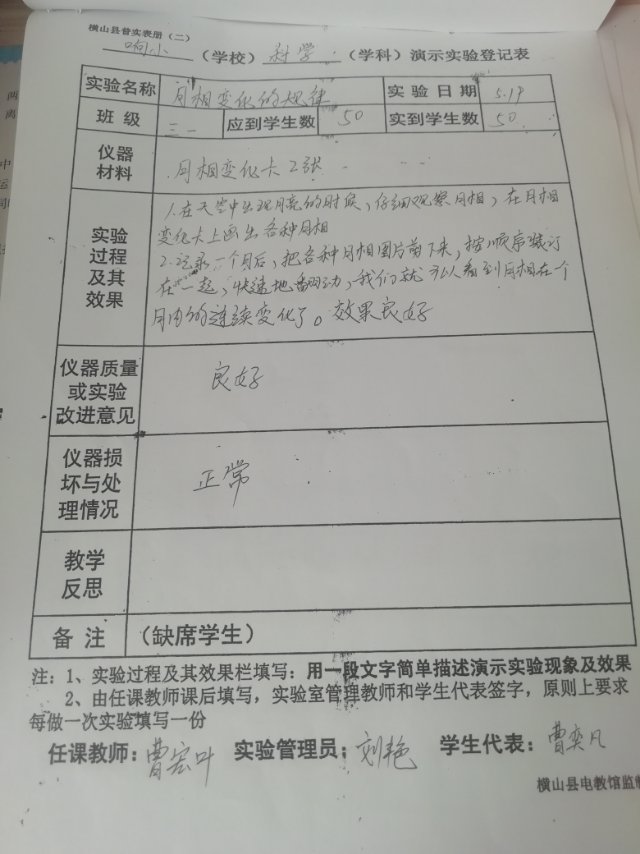 横山县普实表册（二）
响小（学校）科学（学科）演示实验登记表
实验名称 月相变化的规律 实验日期 5.19
班级 三一 应到学生数 50 实到学生数 50
仪器
材料 月相变化卡2张
实验
过程
及其
效果
1.在天空中出现月亮的时候，仔细观察月相，在月相
变化卡上画出各种月相
2.记录一个月后，把各种月相图片剪下来，按顺序装订
在一起，快速地翻动，我们就可以看到月相在个
月内的连续变化了。效果良好
仪器质量
或实验
改进意见
良好
仪器损
坏与处
理情况
正常
教学
反思
备注 （缺席学生）
注：1、实验过程及其效果栏填写：用一段文字简单描述演示实验现象及效果
2、由任课教师课后填写，实验室管理教师和学生代表签字，原则上要求
每做一次实验填写一份
任课教师：曹宏叶 实验管理员：刘艳 学生代表：曹奕凡
横山县电教馆监制